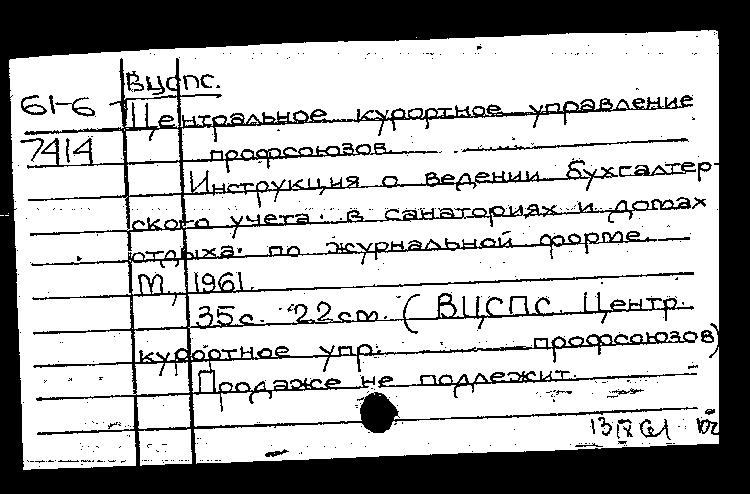 ВЦСПС.
61-6 Центральное курортное управление
7414 профсоюзов.
Инструкция о ведении бухгалтер-
ского учета в санаториях и домах
отдыха по журнальной форме.
М., 1961.
35с. 22см. (ВЦСПС. Центр.
курортное упр. профсоюзов)
Продаже не подлежит.
13 IX 61